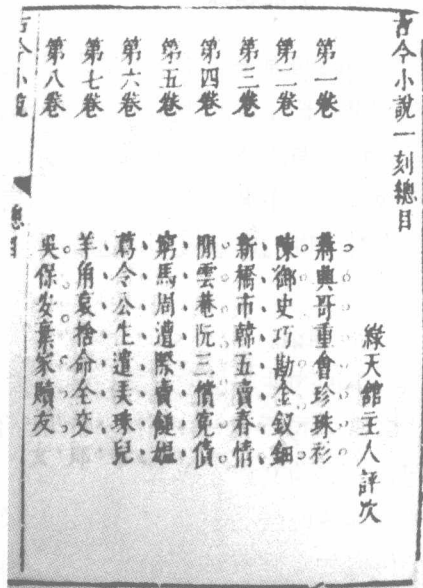 古今小說一刻總目
綠天館主人評次
第一卷 蔣興哥重會珍珠衫
第二卷 陳御史巧勘金釵鈿
第三卷 新橋市韓五賣春情
第四卷 閒雲菴阮三償寃債
第五卷 窮馬周遭際賣䭔媼
第六卷 葛令公生遣美珠兒
第七卷 羊角哀捨命全交
第八卷 吳保安棄家贖友
古今小說 總目